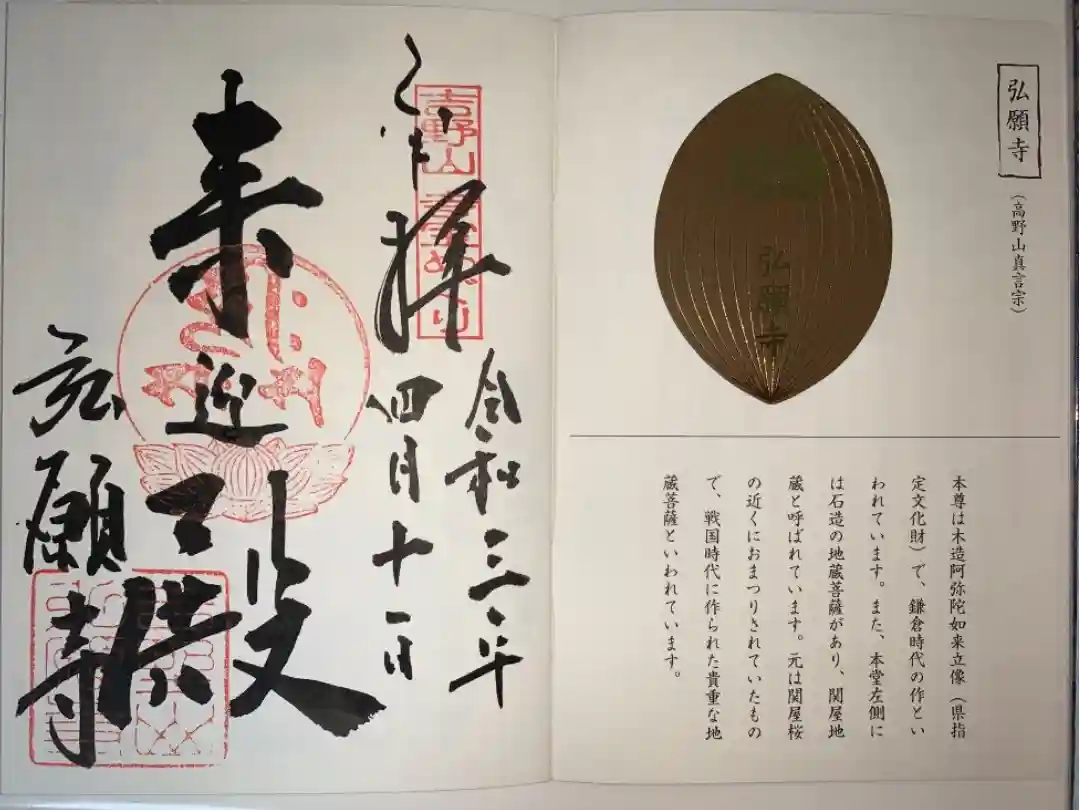 弘願寺
（高野山真言宗）
弘願寺
本尊は木造阿弥陀如来立像（県指
定文化財）で、鎌倉時代の作とい
われています。また、本堂左側に
は石造の地蔵菩薩があり、関屋地
蔵と呼ばれています。元は関屋桜
の近くにおまつりされていたもの
で、戦国時代に作られた貴重な地
蔵菩薩といわれています。
令和三年
吉野山 めぐり
奉拝
四月十一日
来迎殿
弘願寺